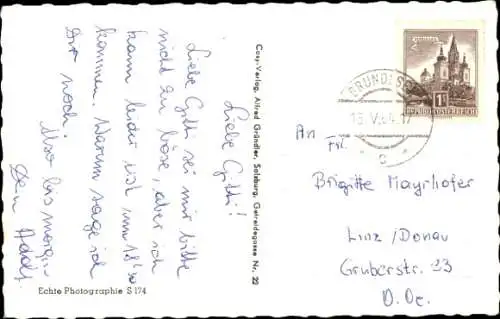 Liebe Gitti!
Liebe Gitti sei mir bitte
nicht zu böse, aber ich
kann leider erst um 18'30
kommen. Warum sage ich
Dir noch.
Also bis morgen
Dein Adolf
Cosy-Verlag, Alfred Gründler, Salzburg, Getreidegasse Nr. 22
Echte Photographie S 174
REPUBLIK ÖSTERREICH
1
An
Frl.
Brigitte Mayrhofer
Linz/Donau
Gruberstr. 23
O.Oe.